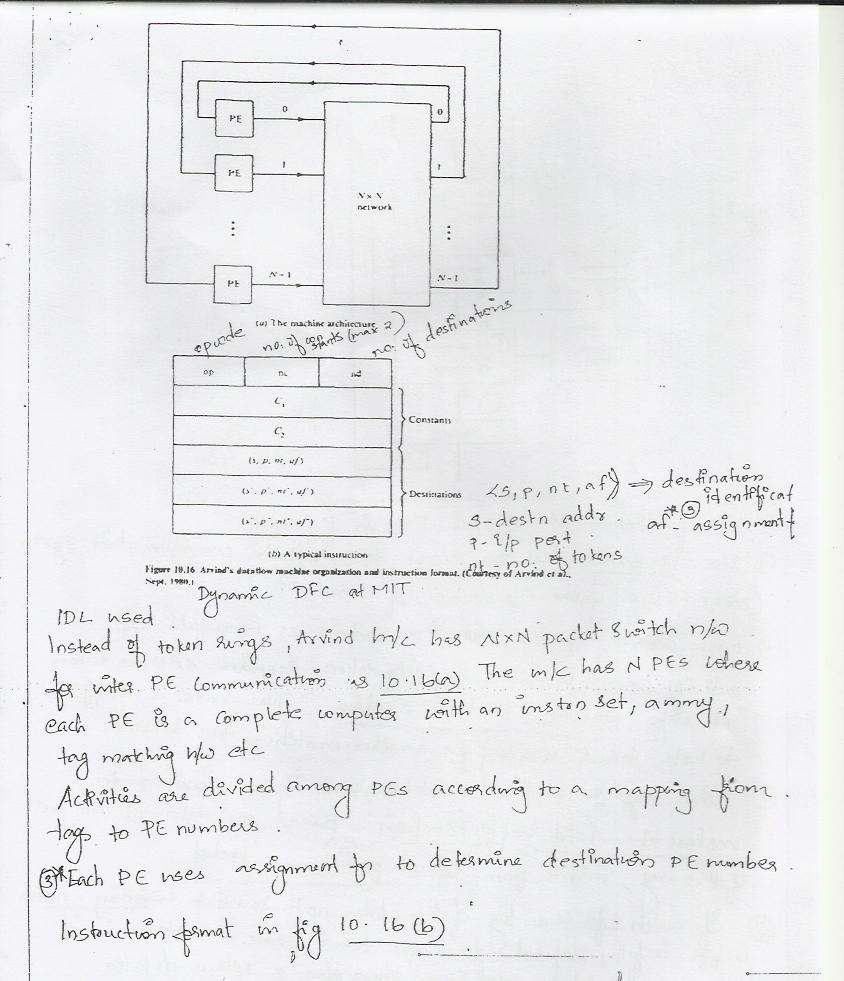 PE
0
0
PE
1
1
N × N
network
PE
N-1
N-1
(a) The machine architecture
opcode
no: of constants (max 2)
no: of destinations
op
nc
nd
C₁
C₂
Constants
(s, p, nt, af)
(s', p', nt', af')
(s'', p'', nt'', af'')
Destinations
(b) A typical instruction
<s, p, nt, af) ⇒ destination
identificat
s - destn addr.
af - assignment f
* ③
p - i/p port
nt - no: of tokens
Figure 10.16 Arvind's dataflow machine organization and instruction format. (Courtesy of Arvind et al.,
Sept. 1980.)
Dynamic DFC at MIT
IDL used.
Instead of token rings, Arvind m/c has N×N packet switch n/w
for inter PE communication is 10.16(a) The m/c has N PEs where
each PE is a complete computer with an instrn set, a mmy,
tag matching h/w etc
Activities are divided among PEs according to a mapping from
tags to PE numbers.
③* Each PE uses assignment fn to determine destination PE number.
Instruction format in fig 10.16(b)